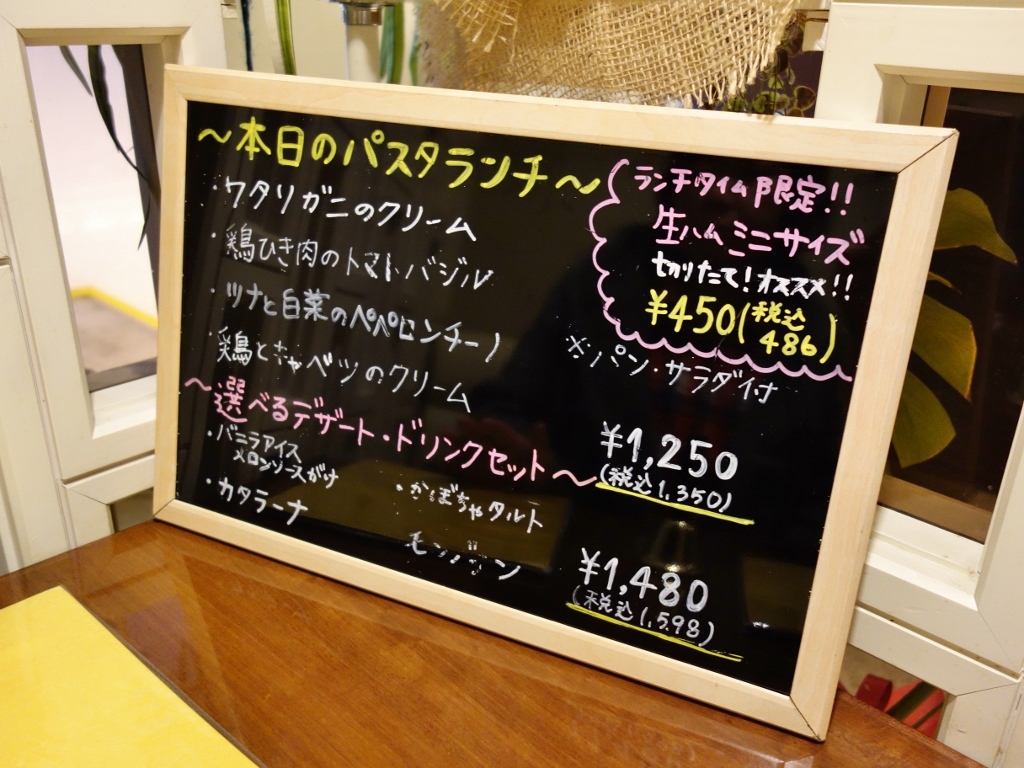 ～本日のパスタランチ～
・ワタリガニのクリーム
・鶏ひき肉のトマトバジル
・ツナと白菜のペペロンチーノ
・鶏とキャベツのクリーム
ランチタイム限定!!
生ハムミニサイズ
切りたて!オススメ!!
¥450(税込486)
※パン・サラダ付
¥1,250
(税込1,350)
～選べるデザート・ドリンクセット～
・バニラアイス
メロンソースがけ
・かぼちゃタルト
・カタラーナ
モンブラン
¥1,480
(税込1,598)